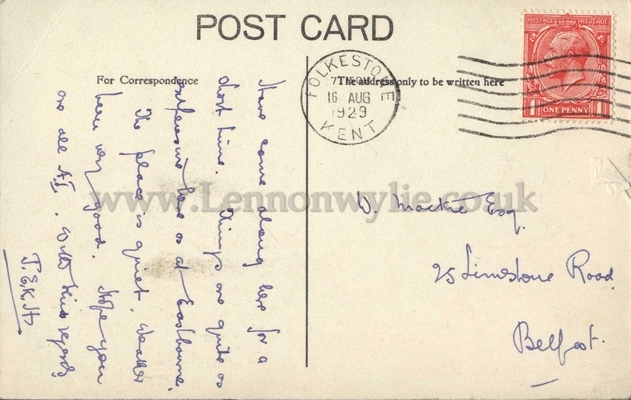 POST CARD
For Correspondence
The address only to be written here
FOLKESTONE
7 15 PM
16 AUG
1929
KENT
POSTAGE REVENUE
1 ONE PENNY 1
Have come along here for a
short time. Things are quite as
expensive here as at Eastbourne.
The place is quiet. Weather
here very good. Hope you
are all A1. With kind regards
J.E.K.H
W. Mackie Esq.
25 Limestone Road.
Belfast.
www.Lennonwylie.co.uk